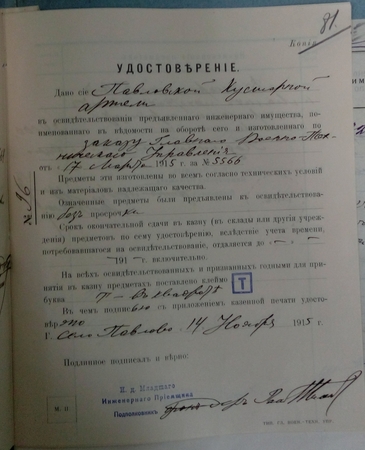 81.
Копія
УДОСТОВѢРЕНІЕ.
Дано сіе Павловской Кустарной
артели
въ освидѣтельствованіи предъявленнаго инженернаго имущества, по-
именованнаго въ вѣдомости на оборотѣ сего и изготовленнаго по
заказу Главнаго Военно-Тех-
ническаго Управленія
отъ 17 Марта 1915 г. за № 5566
Предметы эти изготовлены во всемъ согласно технических условій
и изъ матеріаловъ надлежащаго качества.
Означенные предметы были предъявлены къ освидѣтельствованію
безъ просрочки
Срокъ окончательной сдачи въ казну (въ склады или другія учреж-
денія) предметовъ по сему удостовѣренію, вслѣдствіе учета времени,
потребовавшагося на освидѣтельствованіе, отдаляется до
191 г. включительно.
На всѣхъ освидѣтельствованныхъ и признанныхъ годными для при-
нятія въ казну предметахъ поставлено клеймо
буква Т - въ квадратѣ Т
Въ чемъ подписью съ приложеніемъ казенной печати удосто-
вѣряю
Село Павлово 14 Ноября 1915 г.
Подлинное подписалъ и вѣрно:
И. д. Младшаго
Инженернаго Пріемщика
Подполковникъ
М. П.
№ 96